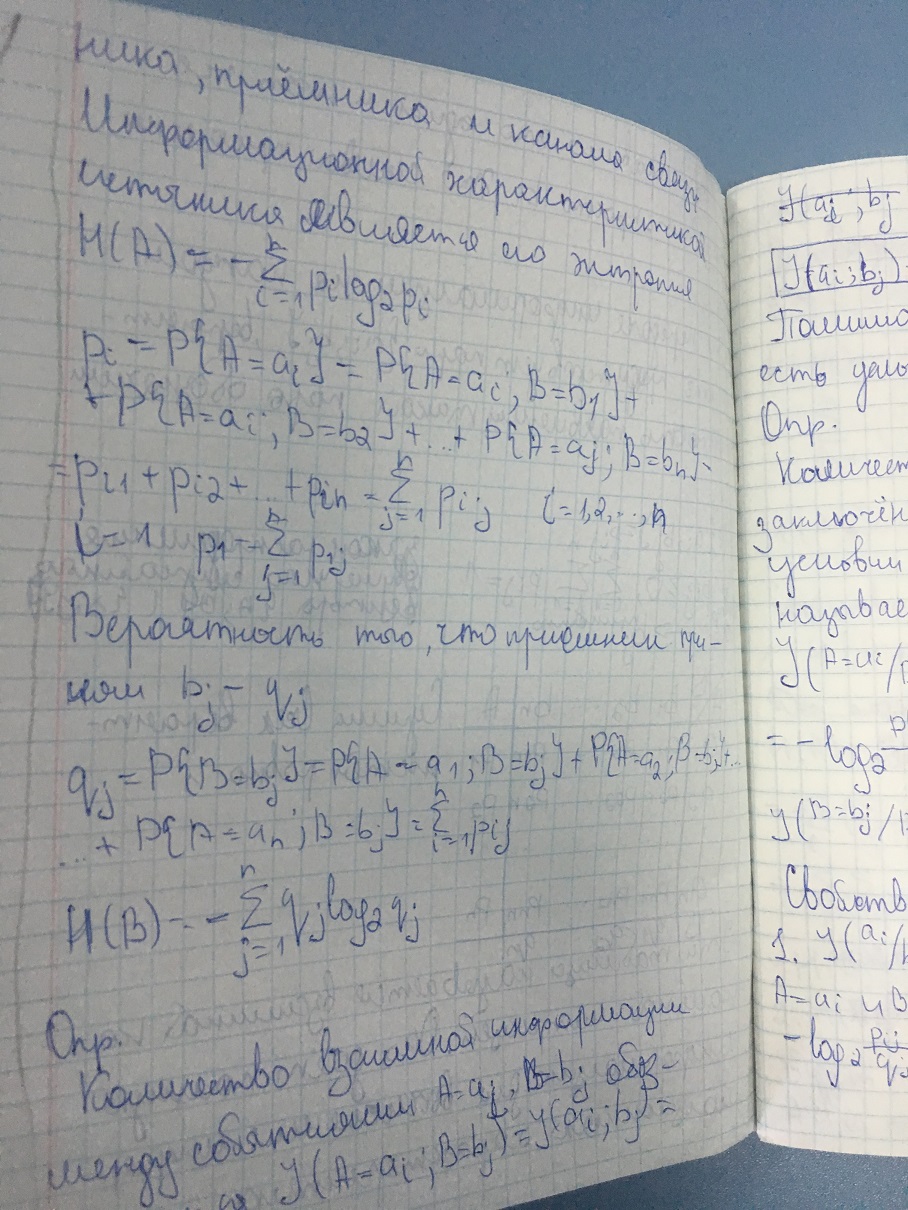 ника, приёмника и канала связи
Информационной характеристикой
источника является его энтропия
H(A) = - ∑ⁿᵢ₌₁ pᵢ log₂ pᵢ
pᵢ = P{A=aᵢ} = P{A=aᵢ; B=b₁}+
+P{A=aᵢ; B=b₂}+...+ P{A=aⱼ; B=bₙ}=
=pᵢ₁ + pᵢ₂ +...+ pᵢₙ = ∑ⁿⱼ₌₁ pᵢⱼ i=1,2,...,n
i=1 p₁ = ∑ⁿⱼ₌₁ p₁ⱼ
Вероятность того, что приёмник при-
нял bⱼ - qⱼ
qⱼ = P{B=bⱼ} = P{A=a₁; B=bⱼ} + P{A=a₂; B=bⱼ}+...
...+ P{A=aₙ; B=bⱼ} = ∑ⁿᵢ₌₁ pᵢⱼ
H(B) = - ∑ⁿⱼ₌₁ qⱼ log₂ qⱼ
Опр.
Количество взаимной информации
между событиями A=aᵢ, B=bⱼ обоз-
ся J(A=aᵢ; B=bⱼ) = J(aᵢ; bⱼ) =
J(aᵢ; bⱼ
J(aᵢ; bⱼ)
есть
Опр.
Количест
заключён
услови
называе
J(A=aᵢ/
= - log₂ p
J(B=bⱼ/
Свойств
1. J(aᵢ/
A=aᵢ и B
- log₂ pᵢⱼ/qⱼ